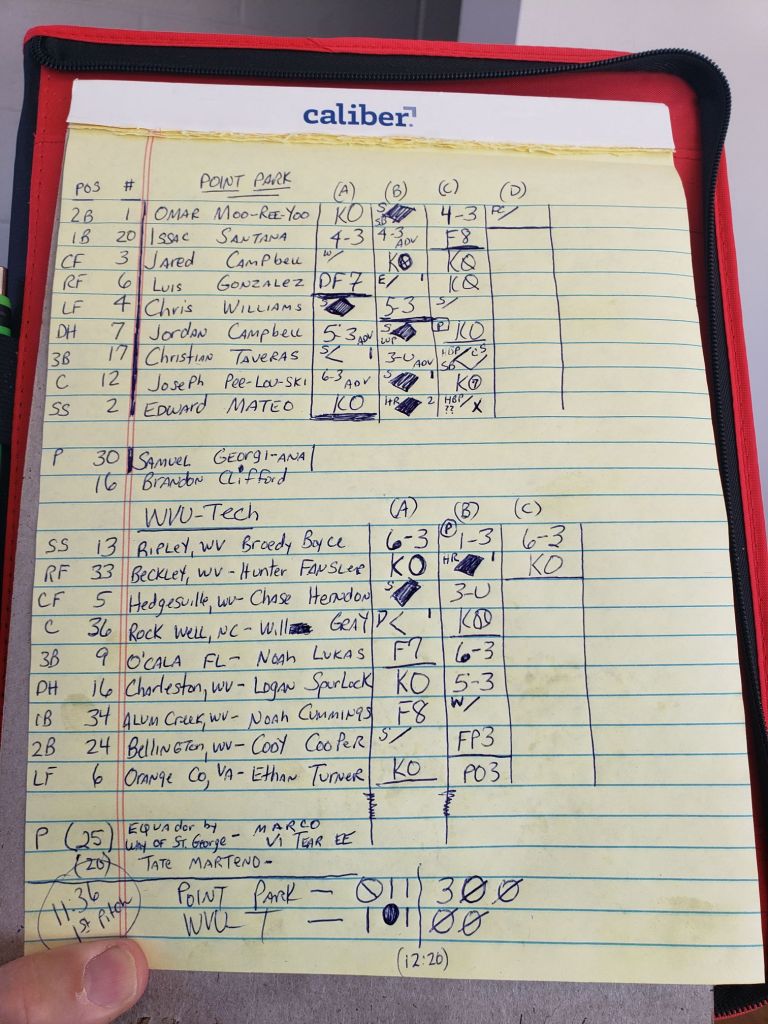 caliber
POS # POINT PARK (A) (B) (C) (D)
2B 1 OMAR MOO-REE-YOO KO S SB 4-3 FC/
1B 20 ISSAC SANTANA 4-3 4-3 ADV F8
CF 3 JARED CAMPBELL W/ K KQ
RF 6 LUIS GONZALEZ DF7 E/ 1 KQ
LF 4 CHRIS WILLIAMS S 5-3 S/
DH 7 JORDAN CAMPBELL 5-3 ADV S WP P KO
3B 17 CHRISTIAN TAVERAS S< 1 3-U ADV HBP CS SB
C 12 JOSEPH PEE-LOU-SKI 6-3 ADV S 1 K
SS 2 EDWARD MATEO KO HR 2 HBP/ X ??
P 30 SAMUEL GEORGI-ANA
16 BRANDON CLIFFORD
WVU-Tech (A) (B) (C)
SS 13 RIPLEY, WV Broedy Boyce 6-3 P 1-3 6-3
RF 33 BECKLEY, WV - HUNTER FANSLER KO HR 1 KO
CF 5 Hedgesville, WV - CHASE Herndon S 3-U
C 36 ROCK WELL, NC - Will GRAY D< 1
3B 9 O'CALA FL - NOAH LUKAS F7 6-3
DH 16 Charleston, WV - LOGAN SPURLOCK KO 5-3
1B 34 ALUM Creek, WV - NOAH CUMMINGS F8 W/
2B 24 BELLINGTON, WV - COOY COOPER S/ FP3
LF 6 ORANGE CO, VA - ETHAN TURNER KO PO3
P (25) EQUADOR by WAY OF ST. GEORGE - MARCO VI TEAR EE
(20) TATE MARTENO -
11:36 1st Pitch
POINT PARK — 0 1 1 | 3 0 0
WVU T — 1 0 1 | 0 0
(12:20)